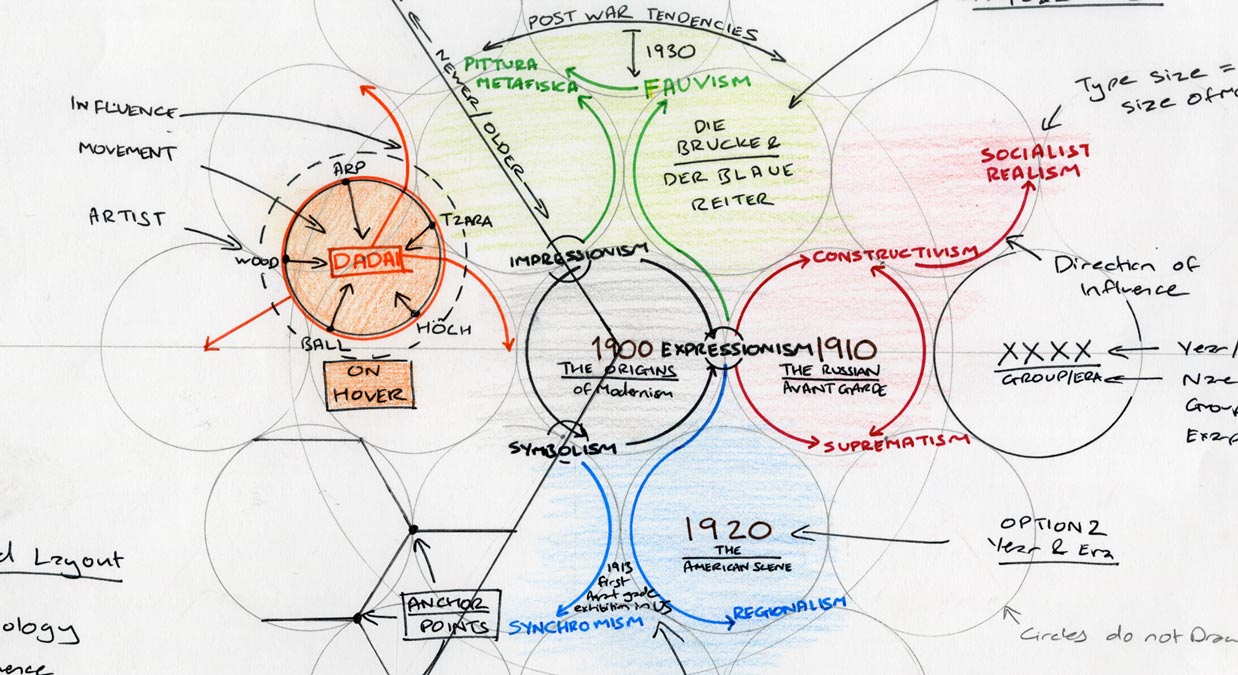 POST WAR TENDENCIES
1930
PITTURA
METAFISICA
FAUVISM
NEWER/OLDER
DIE
BRUCKER
DER BLAUE
REITER
Type size =
size of
SOCIALIST
REALISM
INFLUENCE
MOVEMENT
ARTIST
ARP
TZARA
WOOD
DADA
HÖCH
BALL
ON
HOVER
IMPRESSIONISM
CONSTRUCTIVISM
Direction of
Influence
1900 EXPRESSIONISM/1910
THE ORIGINS
of Modernism
THE RUSSIAN
AVANT GARDE
XXXX
GROUP/ERA
Year/
SYMBOLISM
SUPREMATISM
1920
THE
AMERICAN SCENE
OPTION 2
Year & Era
d Layout
ANCHOR
POINTS
1913
first
Avant garde
exhibition in US
SYNCHROMISM
REGIONALISM
ology
ence
Circles do not Draw